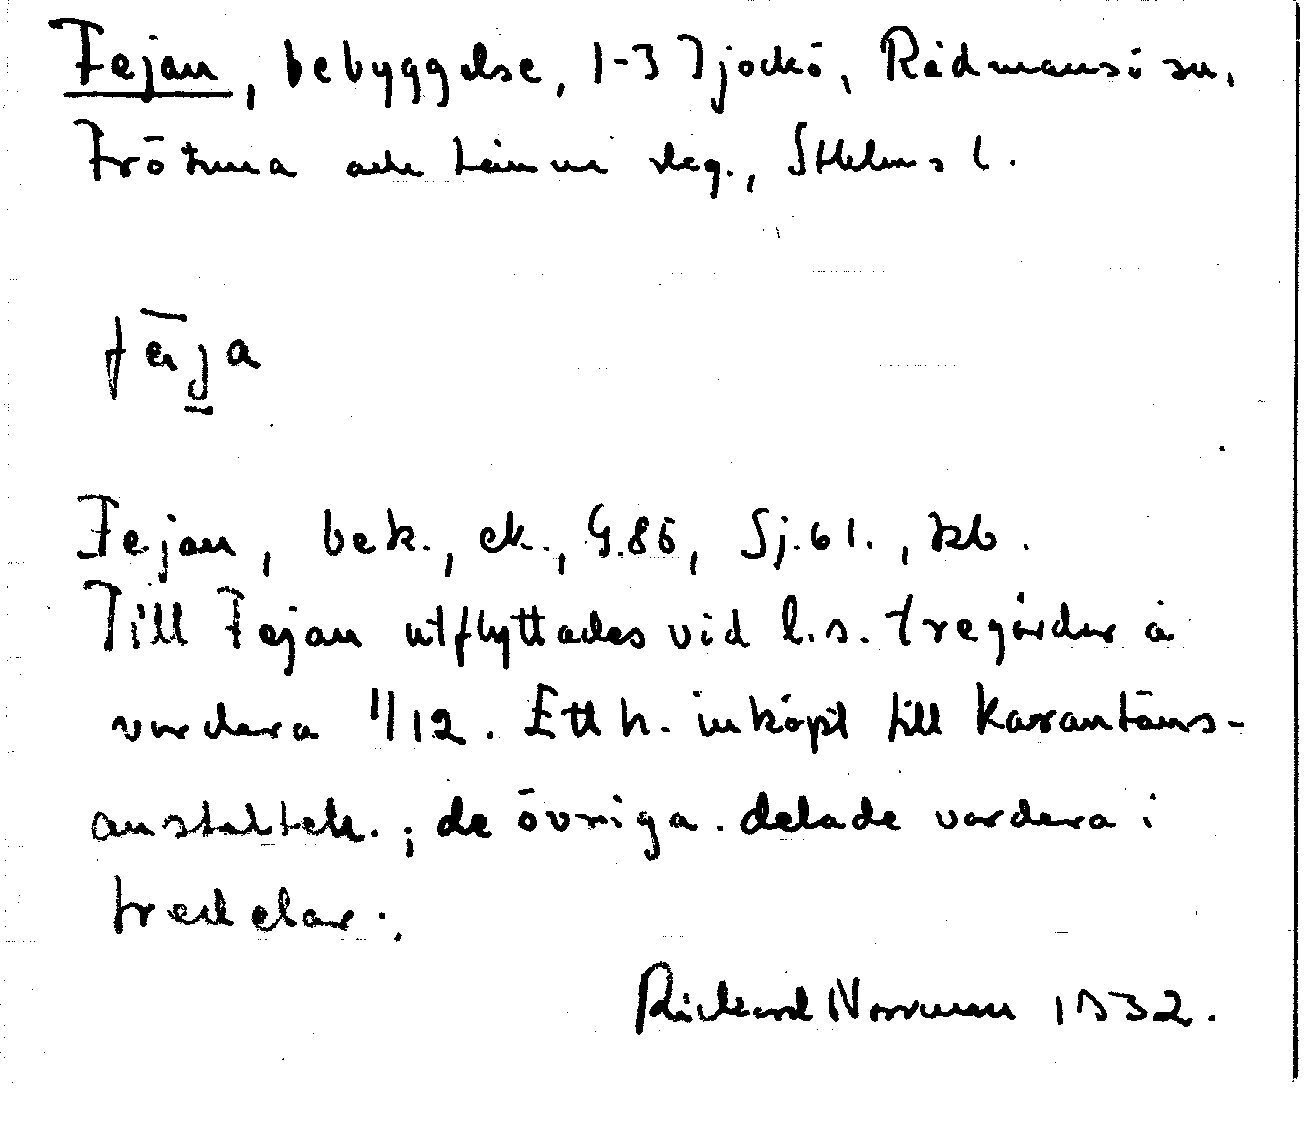 Fejan, bebyggelse, 1-3 Tjockö, Rådmansö sn,
Frötuna och Länna skg., Sthlms l.
fēja
Fejan, bek., ek., G.86, Sj.61., kb.
Till Fejan utflyttades vid l.s. tre gårdar à
vardera 1/12. Ett h. inköpt till Karantäns-
anstalten.; de övriga delade vardera i
tredelar.
Rickard Norrman 1932.